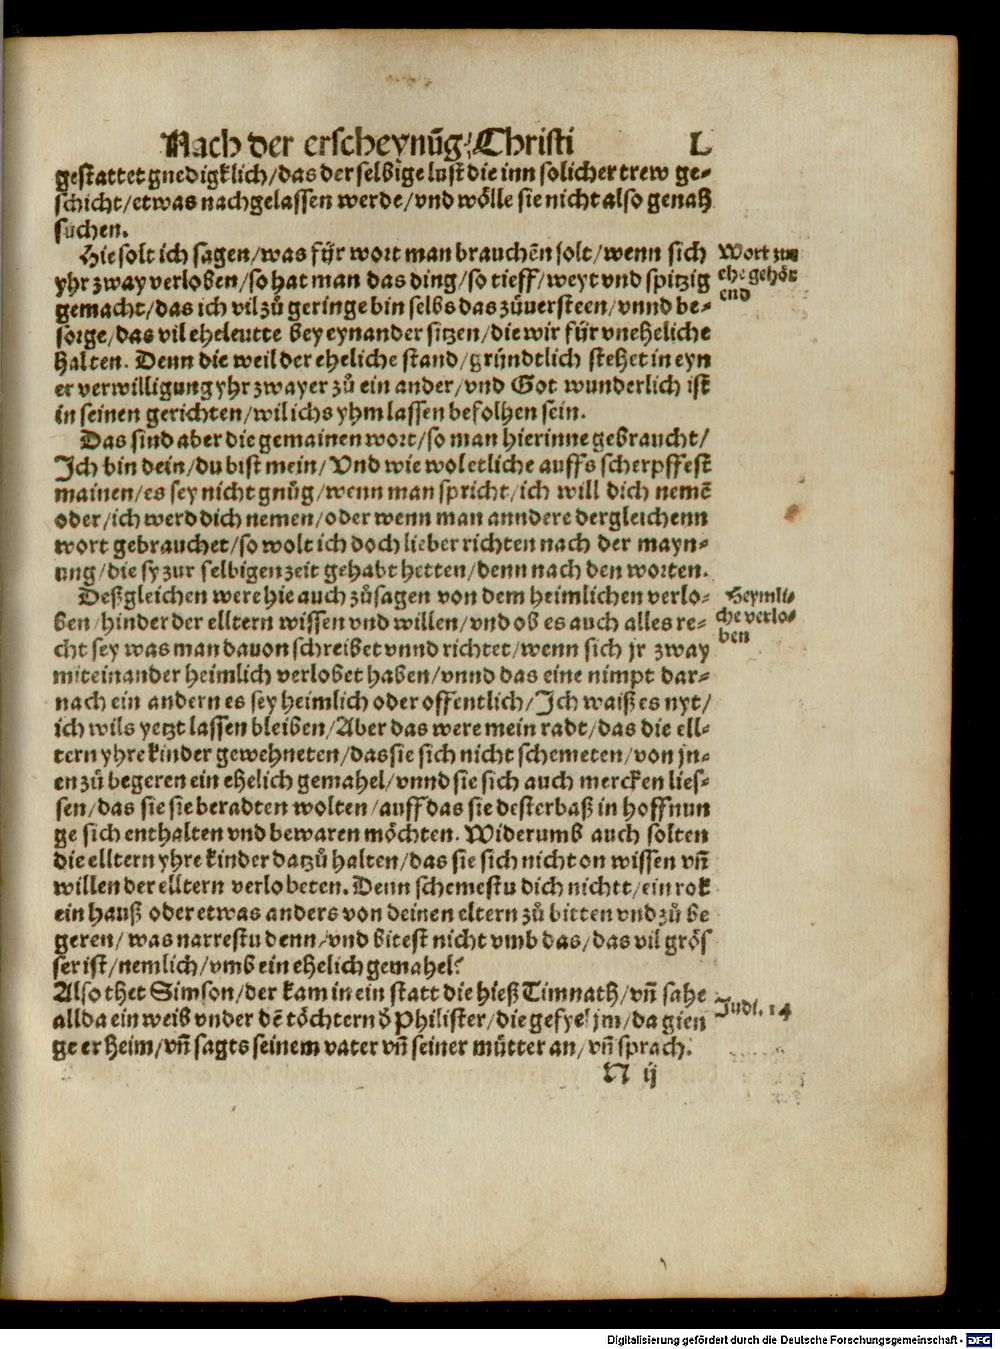 Nach der erscheynūg Christi L
gestattet gnedigklich/das der selbige lust die inn solicher trew ge-
schicht/etwas nachgelassen werde/vnd wölle sie nicht also genaß
suchen.
Hie solt ich sagen/was für wort man brauchēn solt/wenn sich
yhr zway verloben/so hat man das ding/so tieff/weyt vnd spitzig
gemacht/das ich vil zů geringe bin selbs das zůuersteen/vnnd be-
sorge/das vil eheleutte bey eynander sitzen/die wir für vneheliche
halten. Denn die weil der eheliche stand/gründtlich stehet in eyn
er verwilligung yhr zwayer zů ein ander/vnd Got wunderlich ist
in seinen gerichten/wil ichs yhm lassen befolhen sein.
Wort zur
ehe gehör
end
Das sind aber die gemainen wort/so man hierinne gebraucht/
Ich bin dein/du bist mein/Vnd wie wol etliche auffs scherpffest
mainen/es sey nicht gnůg/wenn man spricht/ich will dich nemē
oder/ich werd dich nemen/oder wenn man anndere dergleichenn
wort gebrauchet/so wolt ich doch lieber richten nach der mayn-
ung/die sy zur selbigen zeit gehabt hetten/denn nach den worten.
Deßgleichen were hie auch zůsagen von dem heimlichen verlo-
ben/hinder der elltern wissen vnd willen/vnd ob es auch alles re-
cht sey was man dauon schreibet vnnd richtet/wenn sich jr zway
miteinander heimlich verlobet haben/vnnd das eine nimpt dar-
nach ein andern es sey heimlich oder offentlich/Ich waiß es nyt/
ich wils yetzt lassen bleiben/Aber das were mein radt/das die ell-
tern yhre kinder gewehneten/das sie sich nicht schemeten/von jn-
en zů begeren ein ehelich gemahel/vnnd sie sich auch mercken lies-
sen/das sie sie beradten wolten/auff das sie desterbaß in hoffnun
ge sich enthalten vnd bewaren möchten. Widerumb auch solten
die elltern yhre kinder datzů halten/das sie sich nicht on wissen vñ
willen der elltern verlobeten. Denn schemestu dich nichtt/ein rok
ein hauß oder etwas anders von deinen eltern zů bitten vnd zů be
geren/was narrestu denn/vnd bitest nicht vmb das/das vil grös
ser ist/nemlich/vmb ein ehelich gemahel?
Heymli-
che verlo-
ben
Also thet Simson/der kam in ein statt die hieß Timnath/vñ sahe
allda ein weib vnder dē töchtern ð Philister/die gefyel jm/da gien
ge er heim/vñ sagts seinem vater vñ seiner můtter an/vñ sprach.
Judi. 14
N ij
Digitalisierung gefördert durch die Deutsche Forschungsgemeinschaft - DFG